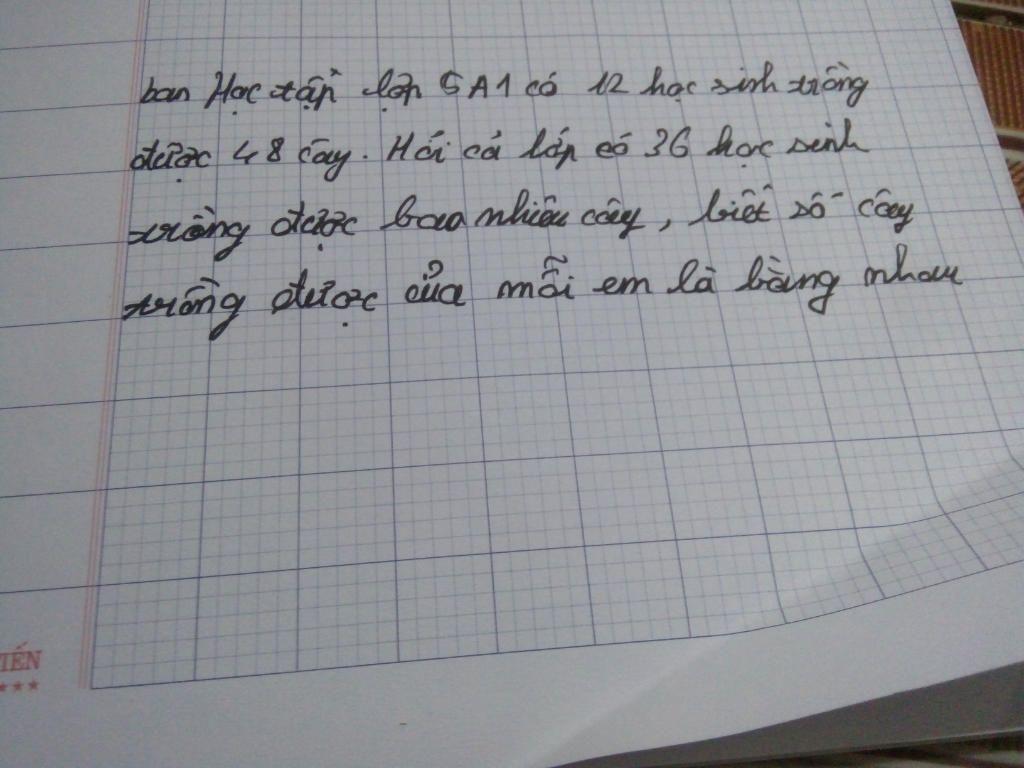 ban Học tập lớp 5A1 có 12 học sinh trồng
được 48 cây. Hỏi cả lớp có 36 học sinh
trồng được bao nhiêu cây, biết số cây
trồng được của mỗi em là bằng nhau
TIẾN
★★★